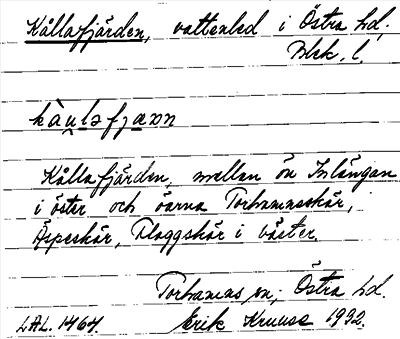 Kållafjärden, vattenled i Östra hd.
Blek. l.
kàu̯lsfjann
Kållafjärden, mellan ön Inlängan
i öster och öarna Torhamnsskär,
Äspeskär, Flaggskär i väster.
Torhamns sn; Östra hd.
LAL. 1464. Erik Kruuse 1932.